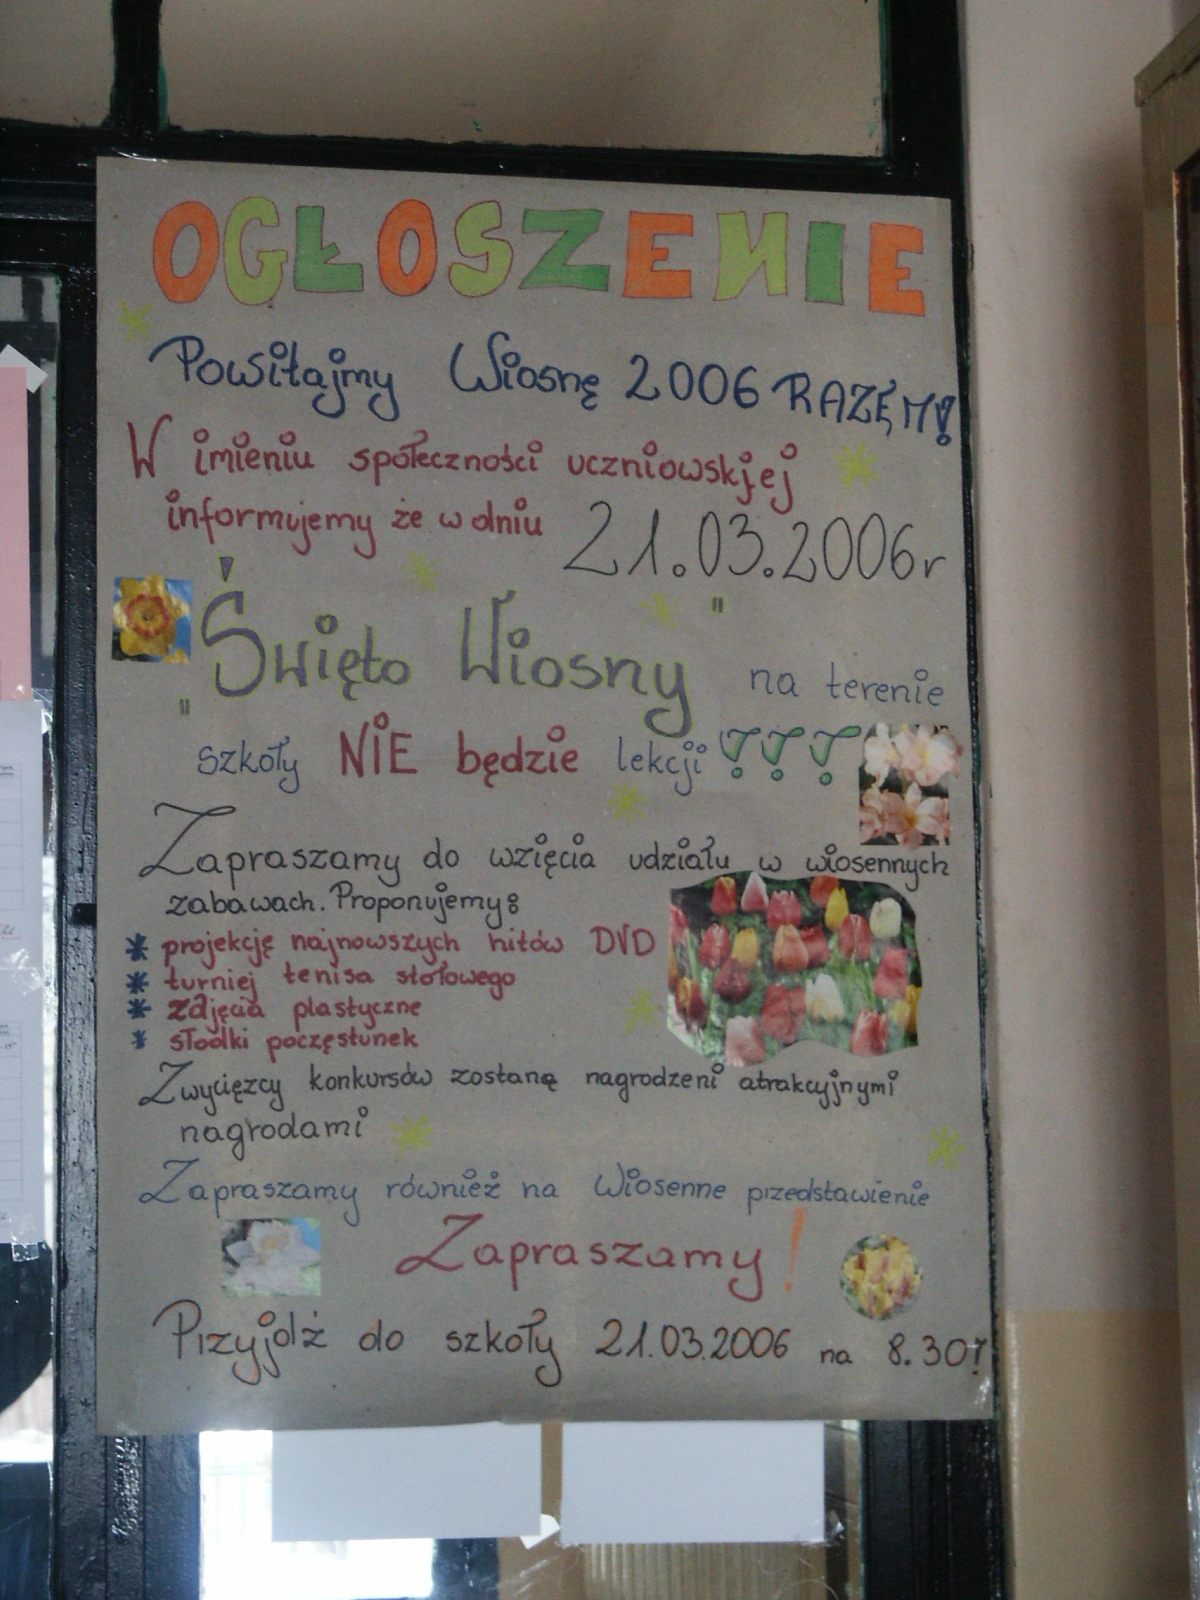 OGŁOSZENIE
Powitajmy Wiosnę 2006 RAZEM!
W imieniu społeczności uczniowskjej
informujemy że w dniu 21.03.2006r
„Święto Wiosny" na terenie
szkoły NIE będzie lekcji !!!
Zapraszamy do wzięcia udziału w wiosennych
zabawach. Proponujemy:
* projekcję najnowszych hitów DVD
* turniej tenisa stołowego
* zdjęcia plastyczne
* słodki poczęstunek
Zwycięzcy konkursów zostaną nagrodzeni atrakcyjnymi
nagrodami
Zapraszamy również na Wiosenne przedstawienie
Zapraszamy!
Przyjdź do szkoły 21.03.2006 na 8.30!